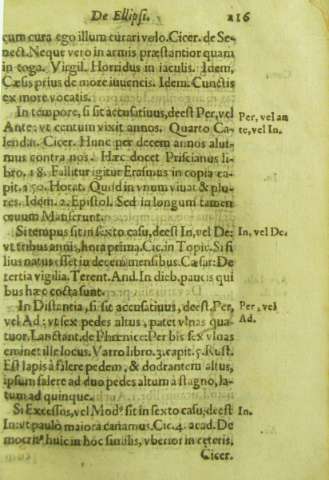 De Ellipsi. 216
cum cura ego illum curari volo. Cicer. de Se-
nect. Neque vero in armis præstantior quam
in toga. Virgil. Horridus in iaculis. Idem,
Cæsis prius de more iuuencis. Idem. Cunctis
ex more vocatis.
In tempore, si sit accusatiuus, deest Per, vel
Ante: vt centum vixit annos. Quarto Ca-
lendas. Cicer. Hunc per decem annos alui-
mus contra nos. Hæc docet Priscianus li-
bro, 18. Fallitur igitur Erasmus in copia ca-
pit. 150. Horat. Quid in vnum viuat & plu-
res. Idem. 2. Epistol. Sed in longum tamen
æuum Manserunt.
Per, vel an
te, vel In.
Si tempus sit in sexto casu, deest In, vel De:
vt tribus annis, hora prima. Cic. in Topic. Si fi
lius natus esset in decem mensibus. Cæsar: De
tertia vigilia. Terent. And. In dieb. paucis qui
bus hæc acta sunt.
In, vel De.
In Distantia, si sit accusatiuus, deest, Per,
vel Ad: vt sex pedes altus, patet vlnas qua-
tuor. Lanctant. de Phœnice: Per bis sex vlnas
eminet ille locus. Varro libro. 3. capit. 5. Rust.
Est lapis à falere pedem, & dodrantem altus,
ipsum falere ad duo pedes altum à stagno, la-
tum ad quinque.
Per, vel
Ad.
Si Excessus, vel Modꝰ sit in sexto casu, deest
In: vt paulò maiora canamus. Cic. 4. acad. De
mocritꝰ huic in hoc similis, vberior in cęteris.
In.
Cicer.